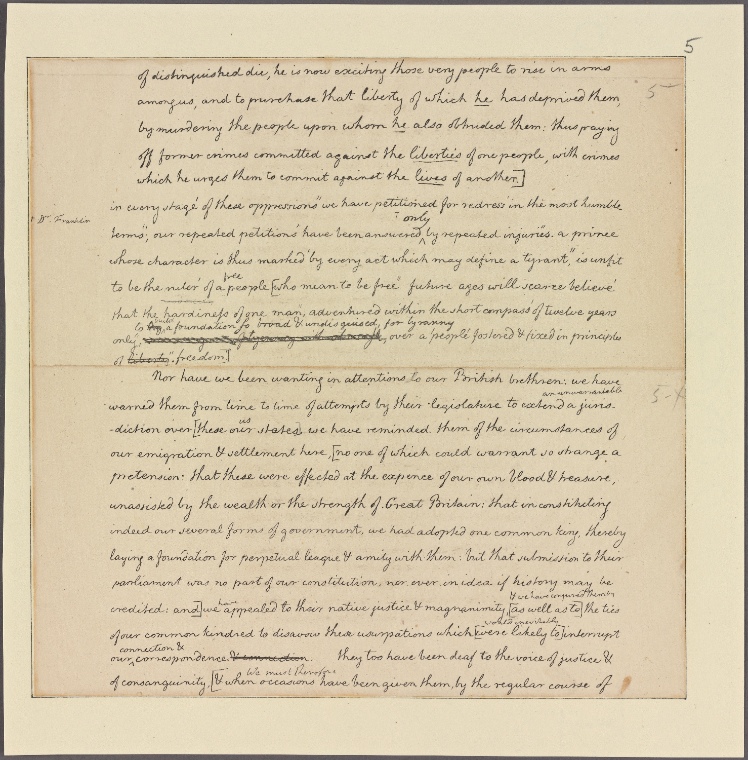 5
of distinguished die, he is now exciting those very people to rise in arms
5
among us, and to purchase that liberty of which he has deprived them,
by murdering the people upon whom he also obtruded them: thus paying
off former crimes committed against the liberties of one people, with crimes
which he urges them to commit against the lives of another.]
in every stage of these oppressions we have petitioned for redress in the most humble
Dr. Franklin
only
terms; our repeated petitions have been answered by repeated injuries. a prince
whose character is thus marked by every act which may define a tyrant, is unfit
free
to be the ruler of a people [who mean to be free. future ages will scarce believe
that the hardiness of one man, adventured within the short compass of twelve years
to build a foundation so broad & undisguised, for tyranny
only, over a people fostered & fixed in principles
of liberty freedom.]
Nor have we been wanting in attentions to our British brethren. we have
an unwarrantable
warned them from time to time of attempts by their legislature to extend a juris-
5-
us
-diction over [these our states]. we have reminded them of the circumstances of
our emigration & settlement here, [no one of which could warrant so strange a
pretension: that these were effected at the expence of our own blood & treasure,
unassisted by the wealth or the strength of Great Britain: that in constituting
indeed our several forms of government, we had adopted one common king, thereby
laying a foundation for perpetual league & amity with them: but that submission to their
parliament was no part of our constitution, nor ever in idea if history may be
& we have conjured them by
credited: and] we appealed to their native justice & magnanimity, [as well as to] the ties
would inevitably
of our common kindred to disavow these usurpations which [were likely to] interrupt
connection &
our correspondence & connection. they too have been deaf to the voice of justice &
We must therefore
of consanguinity, [& when occasions have been given them, by the regular course of